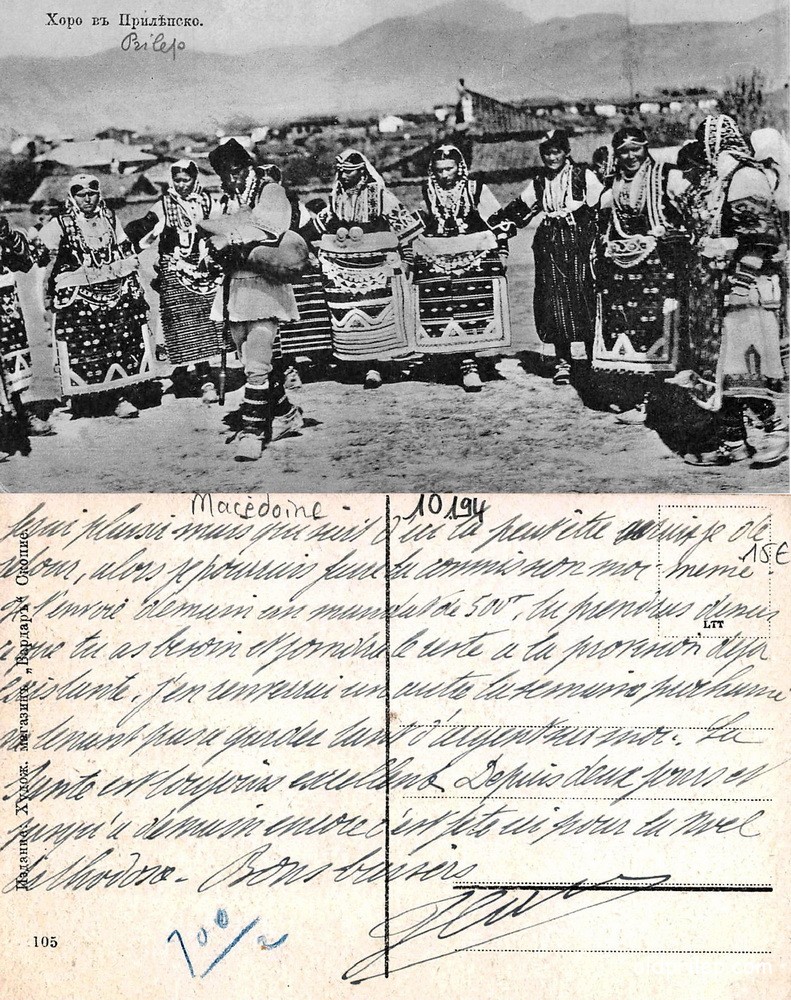 Хоро въ Прилѣпско.
Prilep
Macédoine
10194
18€
mars qui suit d'ici là peut être
alors je pourrais faire ta commission moi-même
envoie demain un mandat de 500f, tu prendras
que tu as besoin et joindra le reste à la provision déjà
existante, j'en renverrai un autre la semaine prochaine
ne tenant pas à garder tant d'argent sur moi. La
Santé est toujours excellente. Depuis deux jours et
jusqu'à demain encore c'est fête ici pour la Noel
orthodoxe. Bons baisers
LTT
Издание: Худож. магазинъ „Вардаръ“ Скопие.
105
700